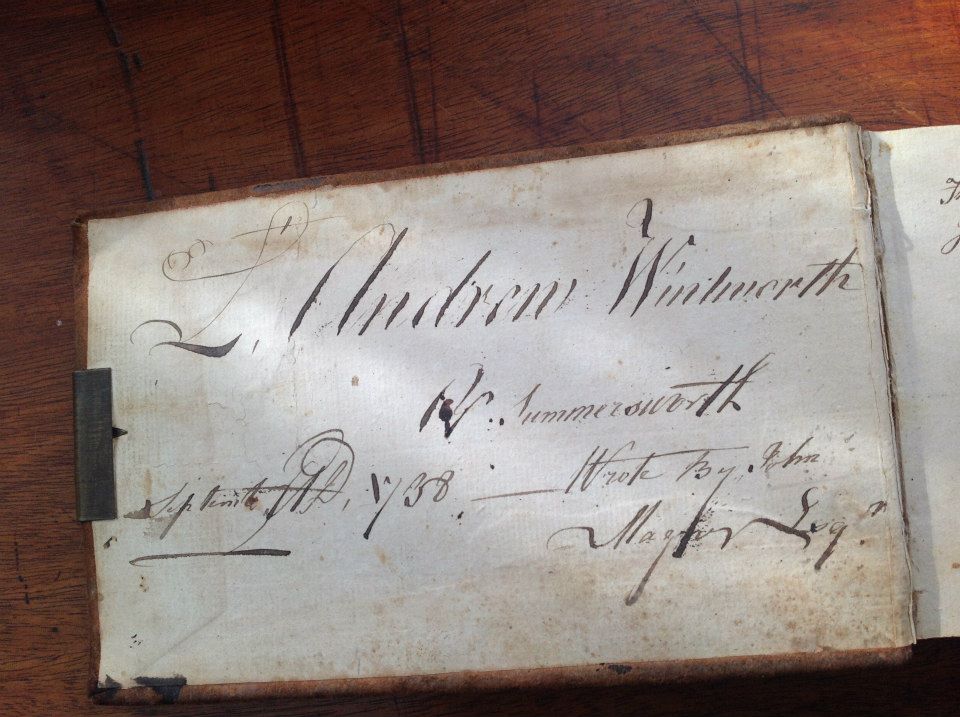 L, Andrew Wintworth
Summersworth
Septembr AD, 1738 — Wrote By John
Esqr